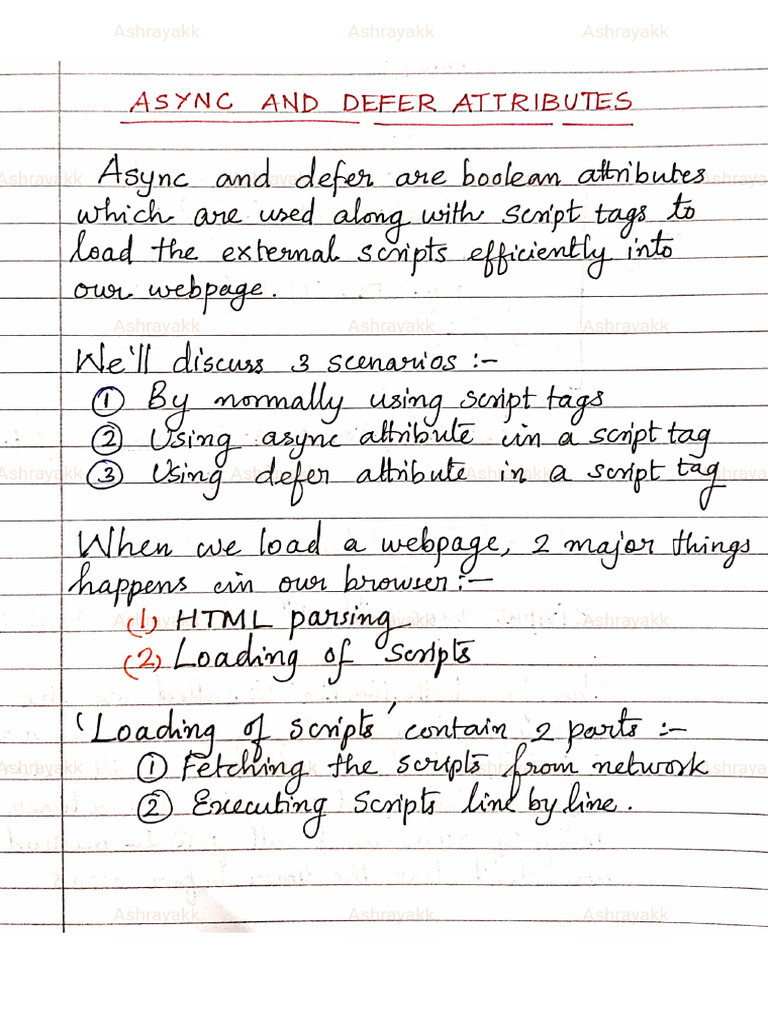 ASYNC AND DEFER ATTRIBUTES
Async and defer are boolean attributes
which are used along with script tags to
load the external scripts efficiently into
our webpage.
We'll discuss 3 scenarios :-
① By normally using script tags
② Using async attribute in a script tag
③ Using defer attribute in a script tag
When we load a webpage, 2 major things
happens in our browser :-
(1) HTML parsing
(2) Loading of Scripts
'Loading of scripts' contain 2 parts :-
① Fetching the scripts from network
② Executing Scripts line by line.
Ashrayakk